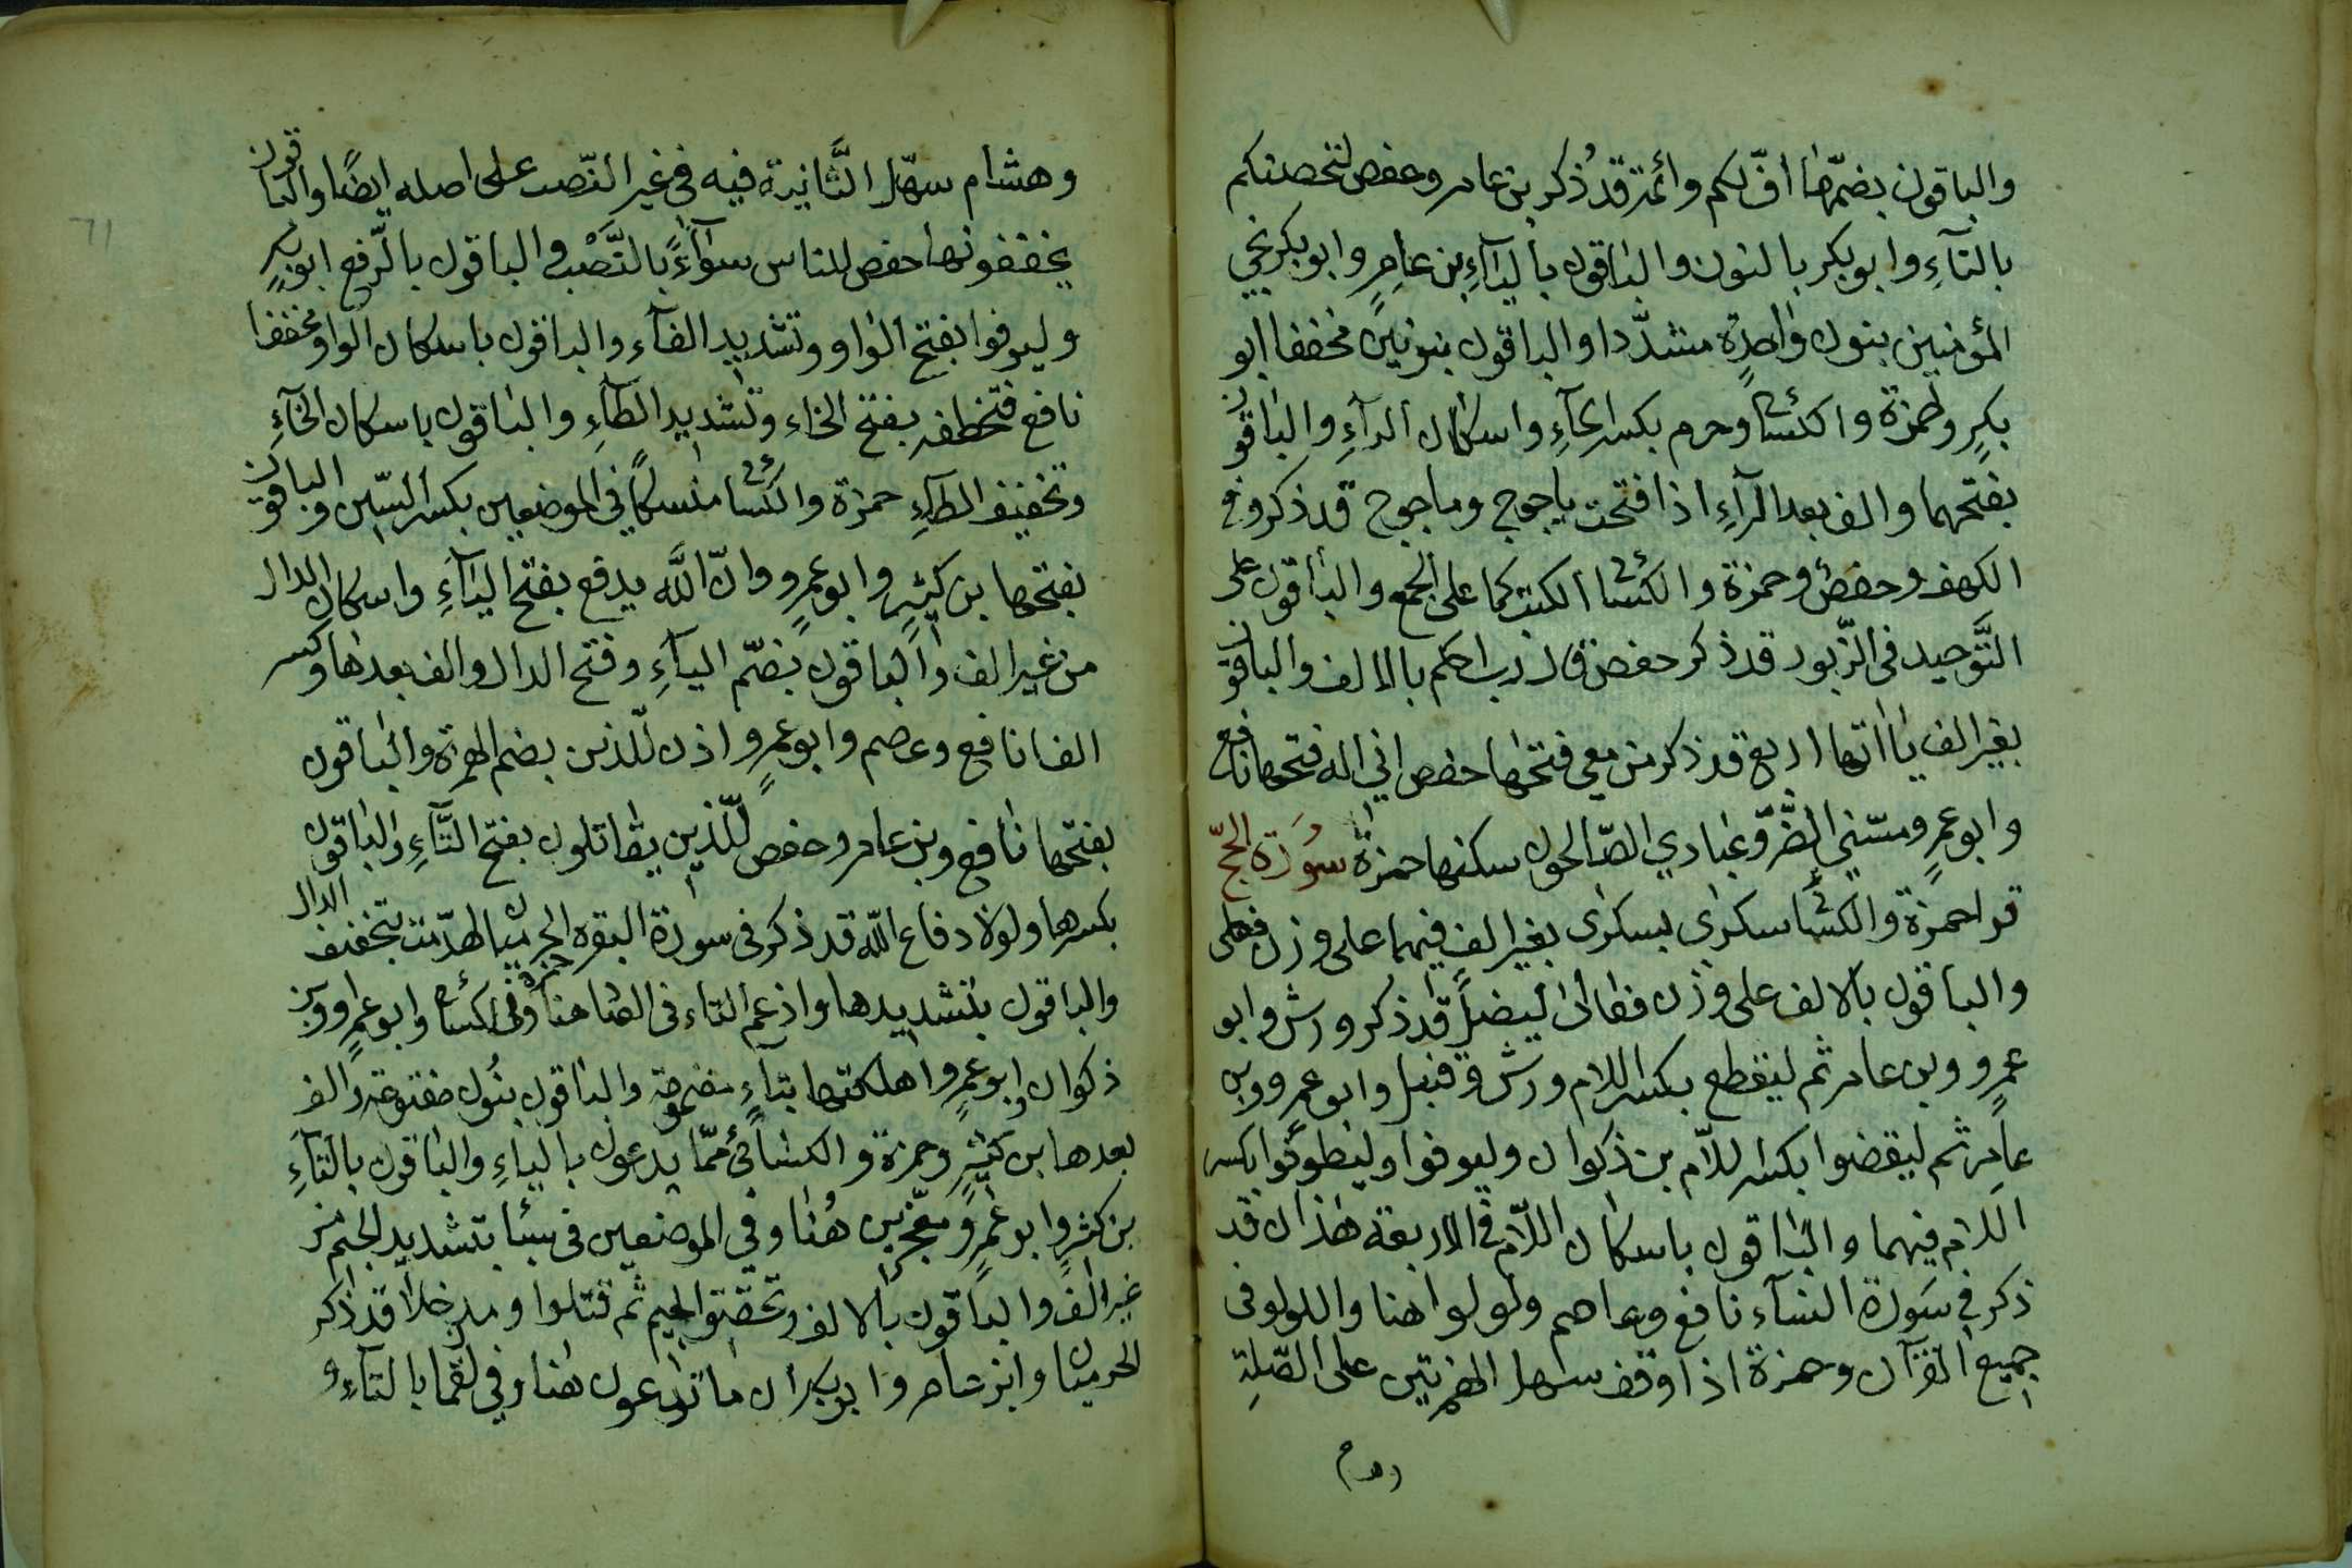 والباقون بضمّها افّ لكم وائمة قد ذُكر بن عامر وحفص لتحصنكم
بالتآءِ وابو بكر بالنون والباقون باليآءِ بن عامِرٍ وابو بكر نجي
المؤمنين بنون واحدة مشدّدا والباقون بنونين مخففا ابو
بكرٍ وحمزة والكسائي وحرم بكسر الحآءِ واسكان الرآءِ والباقون
بفتحهما والف بعد الرآءِ اذا فتحت ياجوج وماجوج قد ذكر في
الكهف وحفص وحمزة والكسائي الكتب كما على الجمع والباقون على
التَّوحيد في الزّبور قد ذكر حفص قال رب احكم بالالف والباقون
بغير الف ياآتها اربع قد ذكر من معي فتحها حفص اني اله فتحها نافع
وابو عمرٍو ومسّني الضُّرّ وعبادي الصّالحون سكنها حمزة سُورَة الحجّ
قرا حمزة والكسائي سكرى بسكرى بغير الف فيهما على وزن فعلى
والباقون بالالف على وزن فعالى ليضلّ قد ذكر ورش وابو
عمرٍو وبن عامر ثم ليقطع بكسر اللام ورش وقنبل وابو عمرٍو وبن
عامِر ثم ليقضوا بكسر اللّام بن ذكوان وليوفوا وليطوّفوا بكسر
اللام فيهما والباقون باسكان اللّام في الاربعة هذان قد
ذكر في سَورة النسآء نافع وعاصم ولولوا هنا واللولو في
جميع القرآن وحمزة اذا وقف سهل الهمزتين على اصلِهِ
وهشام سهّل الثَّانية فيه في غير النّصب على اصله ايضًا والباقون
يخففونها حفص للناس سوآءً بالنَّصْب والباقون بالرّفع ابو بكرٍ
وليوفوا بفتح الواو وتشديد الفآء والباقون باسكان الواو مخففا
نافع فتخطفه بفتح الخاء وتشديد الطآءِ والباقون باسكان الخآءِ
وتخفيف الطآءِ حمزة والكسائي منسكًا في الموضعين بكسر السّين والباقون
بفتحها بن كثيرٍ وابو عمرٍو وانّ اللَّه يدفع بفتح اليآءِ واسكان الدال
من غير الف والباقون بضمّ اليآءِ وفتح الدال والف بعدها وكسر
الفا نافع وعصم وابو عمرٍو اذن للّذين بضم الهمزة والباقون
بفتحها نافع وبن عامر وحفص للّذين يقاتلون بفتح التَّآءِ والباقون
بكسرها ولولا دفاع اللّه قد ذكر في سورة البقره الحرميان لهدّمت بتخفيف الدال
والباقون بتشديدها وادغم التاء في الصاد هنا حمزة والكسائي وابو عمرٍو وبن
ذكوان وابو عمرٍو اهلكتها بتآءٍ مضمومة والباقون بنُون مفتوحة والف
بعدها بن كثيرٍ وحمزة والكسائي ممّا يدعون باليآءِ والباقون بالتآءِ
بن كثير وابو عمرٍو معجّزين هُنا وفي الموضعين في سبأ بتشديد الجيم من
غير الف والباقون بالالف وتخفيف الجيم ثم قتلوا ومدخلا قد ذكر
الحرميان وابن عامر وابو بكر ان ما تدعون هنا وفي لقمان بالتآءِ و